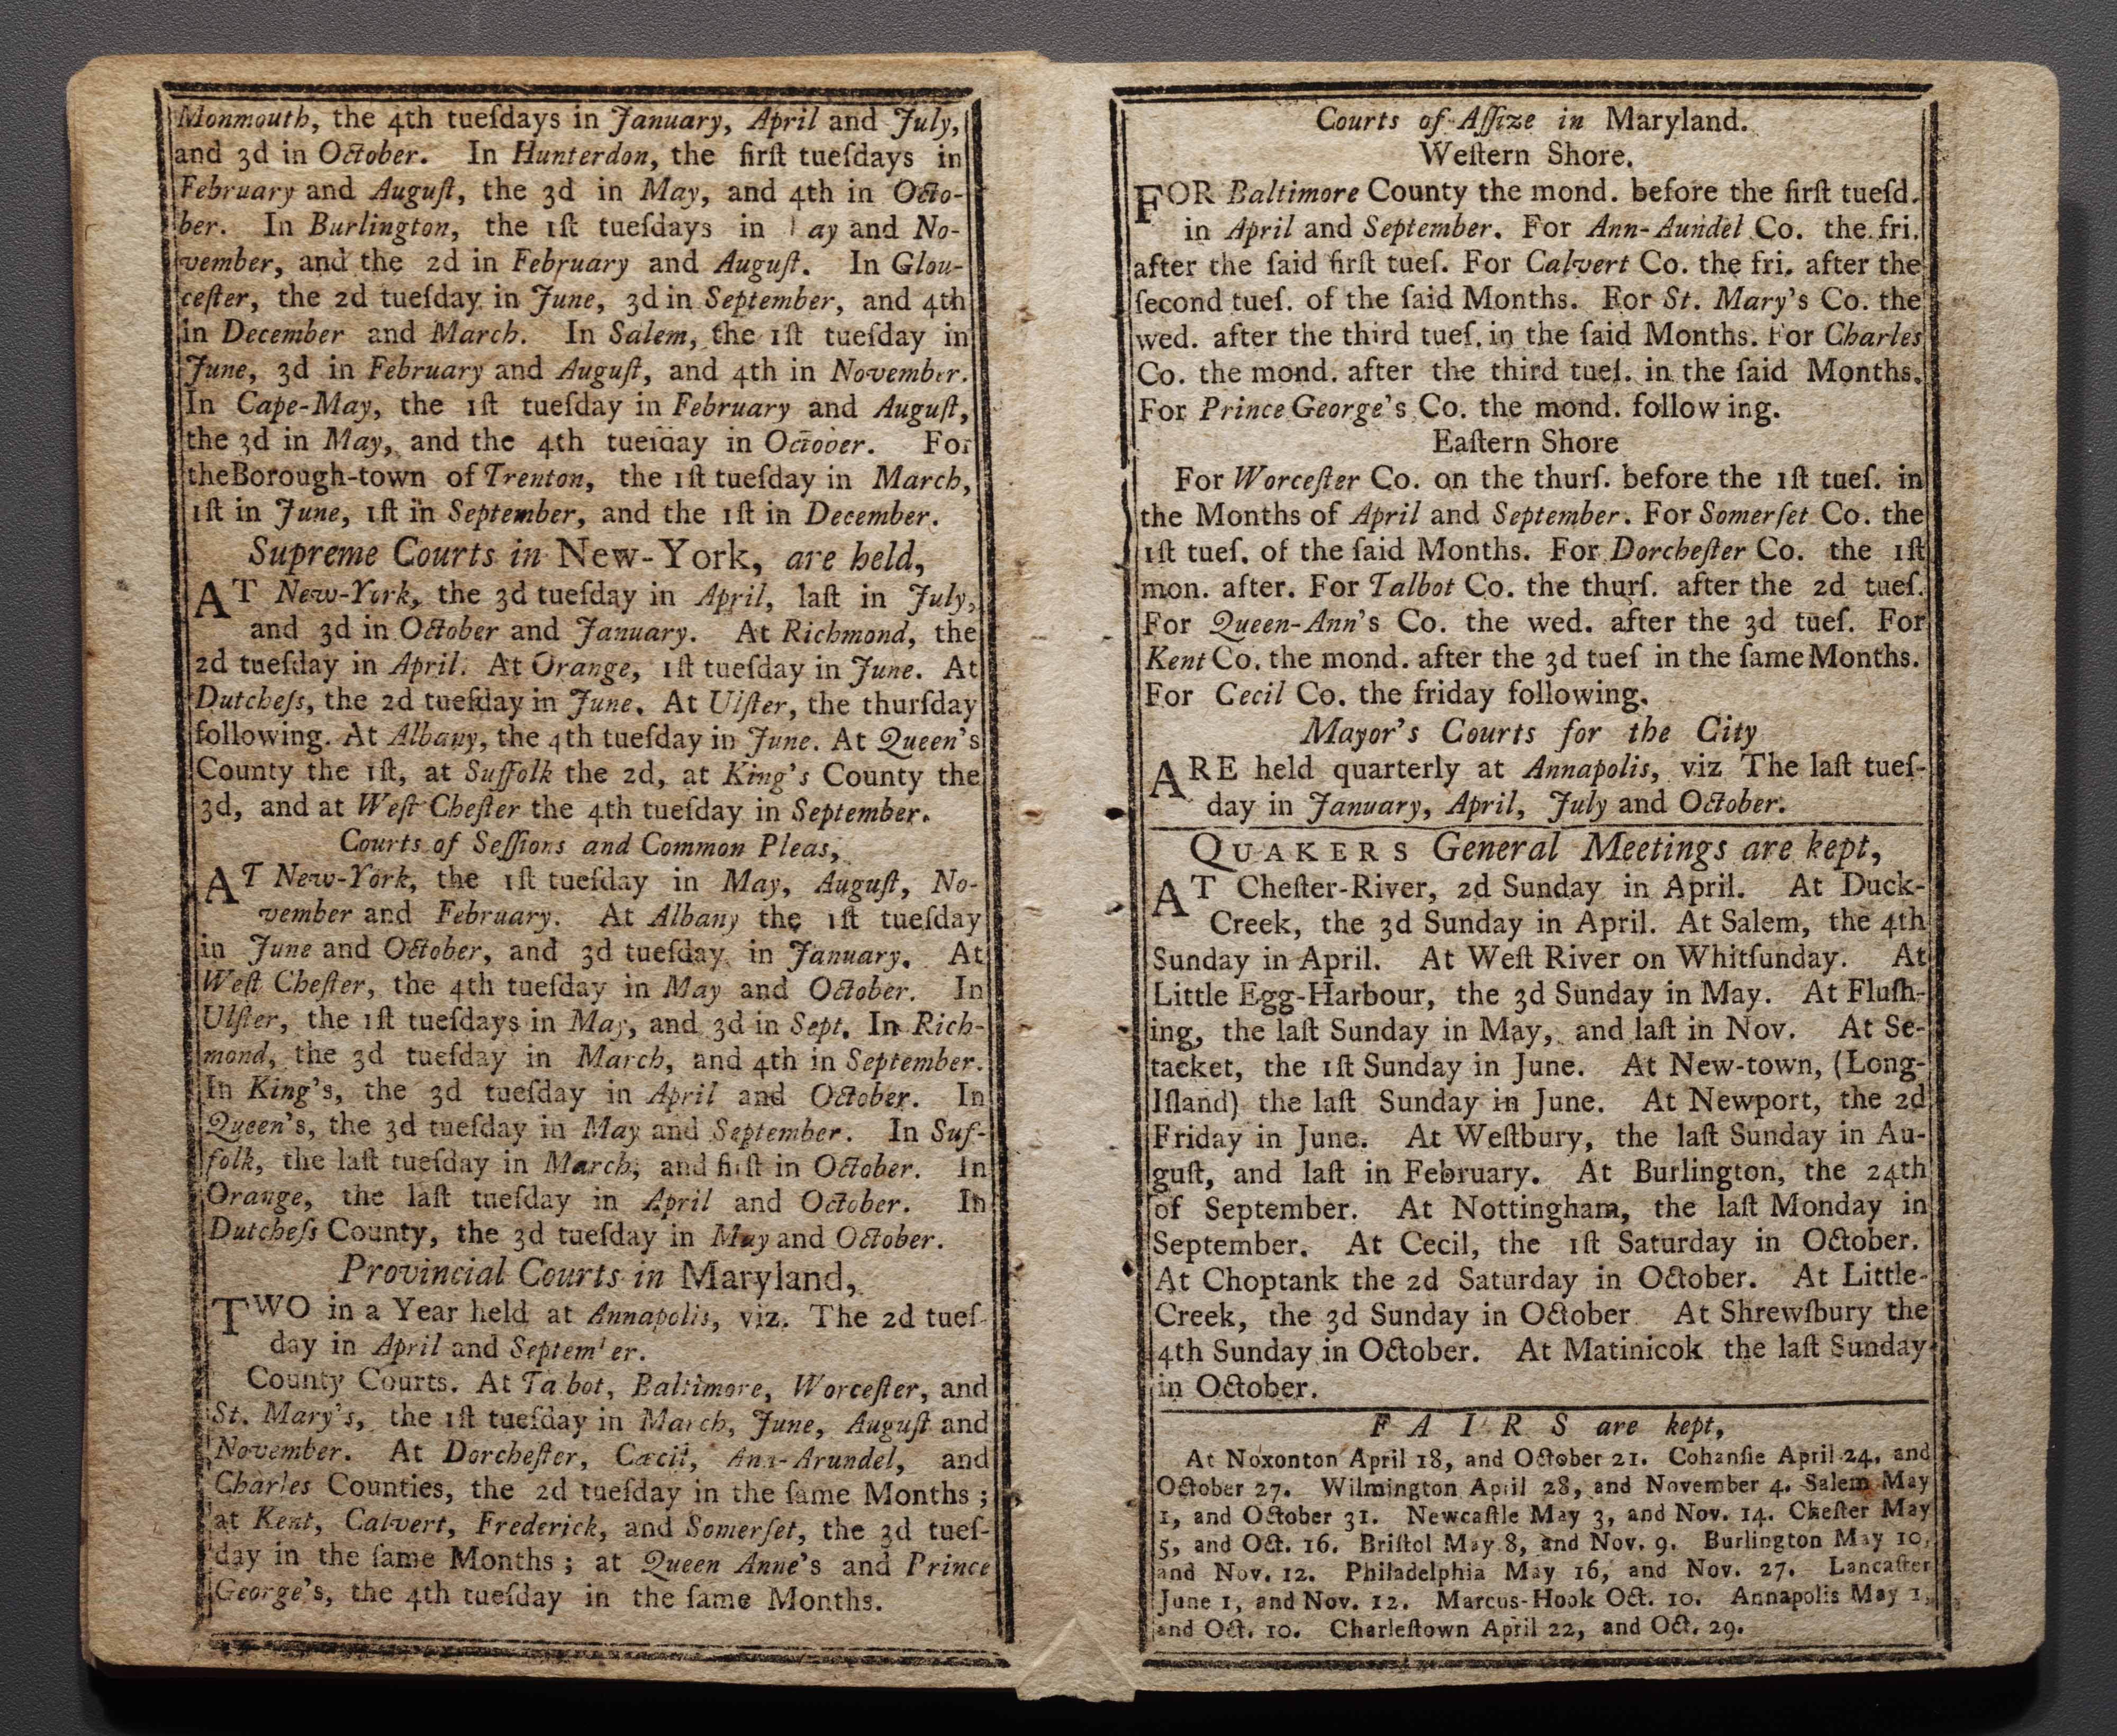 Monmouth, the 4th tueſdays in January, April and July,
and 3d in October. In Hunterdon, the firſt tueſdays in
February and Auguſt, the 3d in May, and 4th in Octo-
ber. In Burlington, the 1ſt tueſdays in ay and No-
vember, and the 2d in February and Auguſt. In Glou-
ceſter, the 2d tueſday in June, 3d in September, and 4th
in December and March. In Salem, the 1ſt tueſday in
June, 3d in February and Auguſt, and 4th in November.
In Cape-May, the 1ſt tueſday in February and Auguſt,
the 3d in May, and the 4th tueſday in October. For
theBorough-town of Trenton, the 1ſt tueſday in March,
1ſt in June, 1ſt in September, and the 1ſt in December.
Supreme Courts in New-York, are held,
AT New-York, the 3d tueſday in April, laſt in July,
and 3d in October and January. At Richmond, the
2d tueſday in April. At Orange, 1ſt tueſday in June. At
Dutcheſs, the 2d tueſday in June. At Ulſter, the thurſday
following. At Albany, the 4th tueſday in June. At Queen's
County the 1ſt, at Suffolk the 2d, at King's County the
3d, and at Weſt Cheſter the 4th tueſday in September.
Courts of Seſſions and Common Pleas,
AT New-York, the 1ſt tueſday in May, Auguſt, No-
vember and February. At Albany the 1ſt tueſday
in June and October, and 3d tueſday in January. At
Weſt Cheſter, the 4th tueſday in May and October. In
Ulſter, the 1ſt tueſdays in May, and 3d in Sept. In Rich-
mond, the 3d tueſday in March, and 4th in September.
In King's, the 3d tueſday in April and October. In
Queen's, the 3d tueſday in May and September. In Suf-
folk, the laſt tueſday in March, and firſt in October. In
Orange, the laſt tueſday in April and October. In
Dutcheſs County, the 3d tueſday in May and October.
Provincial Courts in Maryland,
TWO in a Year held at Annapolis, viz. The 2d tueſ-
day in April and September.
County Courts. At Talbot, Baltimore, Worceſter, and
St. Mary's, the 1ſt tueſday in March, June, Auguſt and
November. At Dorcheſter, Cæcil, Ann-Arundel, and
Charles Counties, the 2d tueſday in the ſame Months;
at Kent, Calvert, Frederick, and Somerſet, the 3d tueſ-
day in the ſame Months; at Queen Anne's and Prince
George's, the 4th tueſday in the ſame Months.
Courts of Aſſize in Maryland.
Weſtern Shore.
FOR Baltimore County the mond. before the firſt tueſd.
in April and September. For Ann-Aundel Co. the fri.
after the ſaid firſt tueſ. For Calvert Co. the fri. after the
ſecond tueſ. of the ſaid Months. For St. Mary's Co. the
wed. after the third tueſ. in the ſaid Months. For Charles
Co. the mond. after the third tueſ. in the ſaid Months.
For Prince George's Co. the mond. following.
Eaſtern Shore
For Worceſter Co. on the thurſ. before the 1ſt tueſ. in
the Months of April and September. For Somerſet Co. the
1ſt tueſ. of the ſaid Months. For Dorcheſter Co. the 1ſt
mon. after. For Talbot Co. the thurſ. after the 2d tueſ.
For Queen-Ann's Co. the wed. after the 3d tueſ. For
Kent Co. the mond. after the 3d tueſ in the ſame Months.
For Cecil Co. the friday following.
Mayor's Courts for the City
ARE held quarterly at Annapolis, viz The laſt tueſ-
day in January, April, July and October.
QUAKERS General Meetings are kept,
AT Cheſter-River, 2d Sunday in April. At Duck-
Creek, the 3d Sunday in April. At Salem, the 4th
Sunday in April. At Weſt River on Whitſunday. At
Little Egg-Harbour, the 3d Sunday in May. At Fluſh-
ing, the laſt Sunday in May, and laſt in Nov. At Se-
tacket, the 1ſt Sunday in June. At New-town, (Long-
Iſland) the laſt Sunday in June. At Newport, the 2d
Friday in June. At Weſtbury, the laſt Sunday in Au-
guſt, and laſt in February. At Burlington, the 24th
of September. At Nottingham, the laſt Monday in
September. At Cecil, the 1ſt Saturday in October.
At Choptank the 2d Saturday in October. At Little-
Creek, the 3d Sunday in October At Shrewſbury the
4th Sunday in October. At Matinicok the laſt Sunday
in October.
FAIRS are kept,
At Noxonton April 18, and October 21. Cohanſie April 24, and
October 27. Wilmington April 28, and November 4. Salem May
1, and October 31. Newcaſtle May 3, and Nov. 14. Cheſter May
5, and Oct. 16. Briſtol May 8, and Nov. 9. Burlington May 10,
and Nov. 12. Philadelphia May 16, and Nov. 27. Lancaſter
June 1, and Nov. 12. Marcus-Hook Oct. 10. Annapolis May 1,
and Oct. 10. Charleſtown April 22, and Oct. 29.